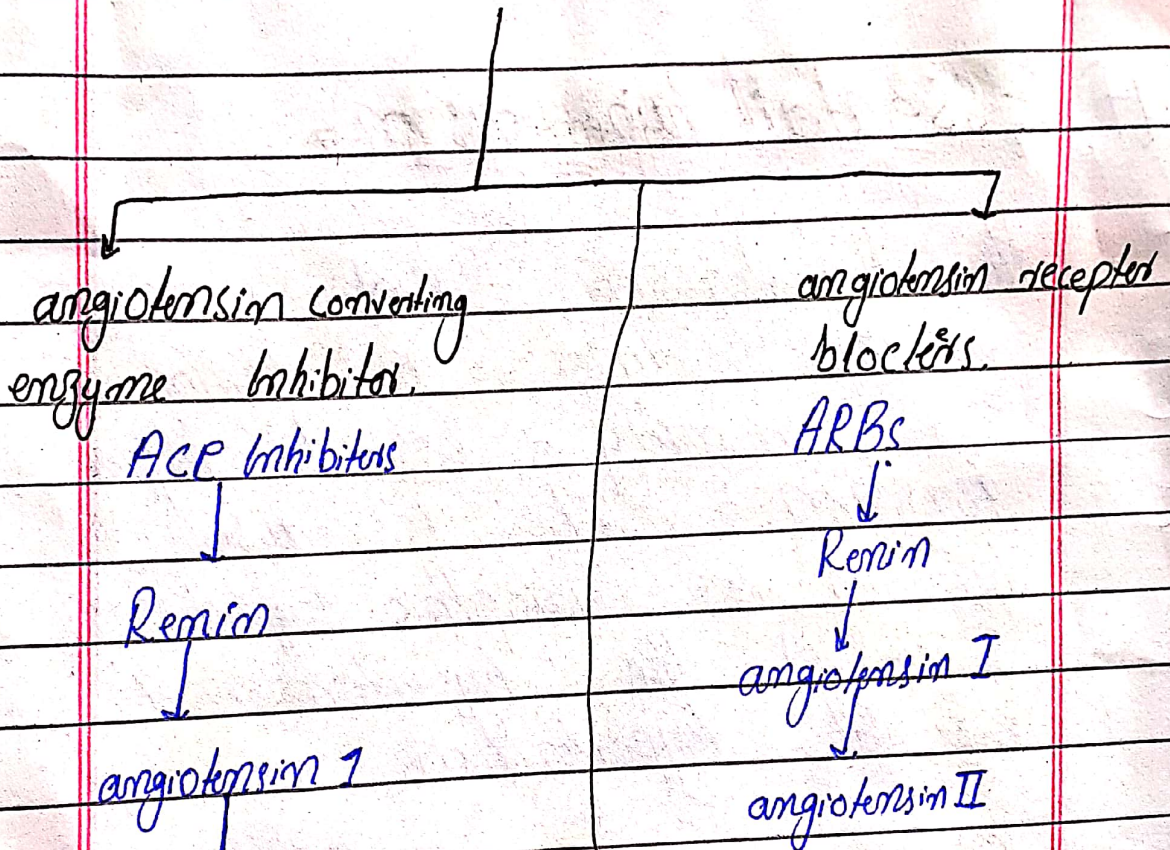 angiotensin converting
enzyme Inhibitor.
ACE Inhibitors
Renin
angiotensin 1
angiotensin receptor
blockers.
ARBs
Renin
angiotensin I
angiotensin II